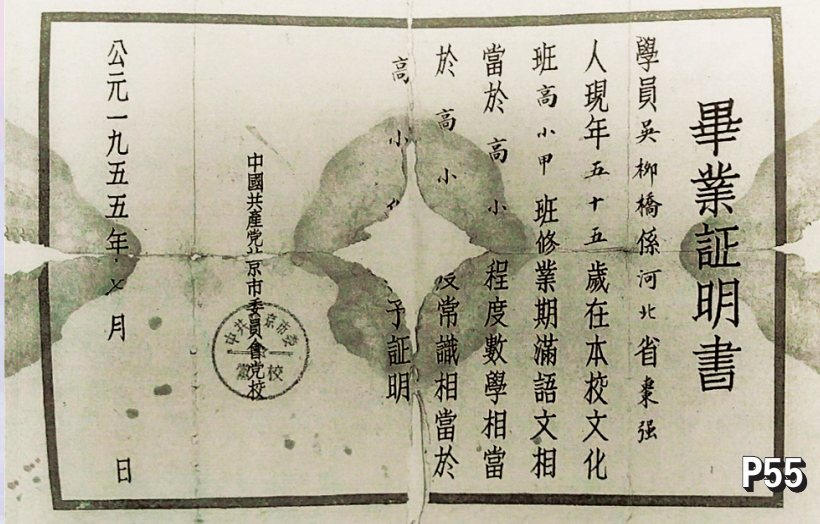 畢業証明書
學員吳柳橋係河北省棗强
人現年五十五歲在本校文化
班高小甲班修業期滿語文相
當於高小程度數學相當
於高小常識相當於
高小予証明
中國共產党北京市委員會党校
中共北京市委
黨校
公元一九五五年七月 日
P55